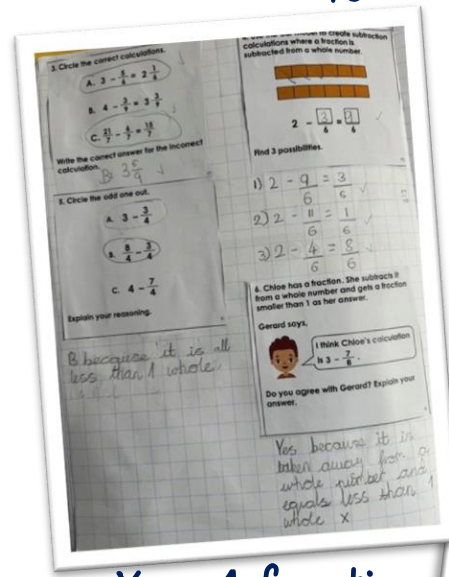 3. Circle the correct calculations.
A. 3 - 5/6 = 2 1/6
B. 4 - 3/9 = 3 3/9
C. 21/7 - 6/7 = 15/7
Write the correct answer for the incorrect
calculation.
B: 3 6/9 ✓
5. Circle the odd one out.
A. 3 - 3/4
B. 8/4 - 3/4
C. 4 - 7/4
Explain your reasoning.
B because it is all
less than 1 whole
model to create subtraction
calculations where a fraction is
subtracted from a whole number.
2 - 3/6 = 9/6
Find 3 possibilities.
1) 2 - 9/6 = 3/6 ✓
2) 2 - 11/6 = 1/6 ✓
3) 2 - 4/6 = 8/6 ✓
6. Chloe has a fraction. She subtracts it
from a whole number and gets a fraction
smaller than 1 as her answer.
Gerard says,
I think Chloe's calculation
is 3 - 7/8 .
Do you agree with Gerard? Explain your
answer.
Yes because it is
taken away from a
whole number and
equals less than 1
whole x